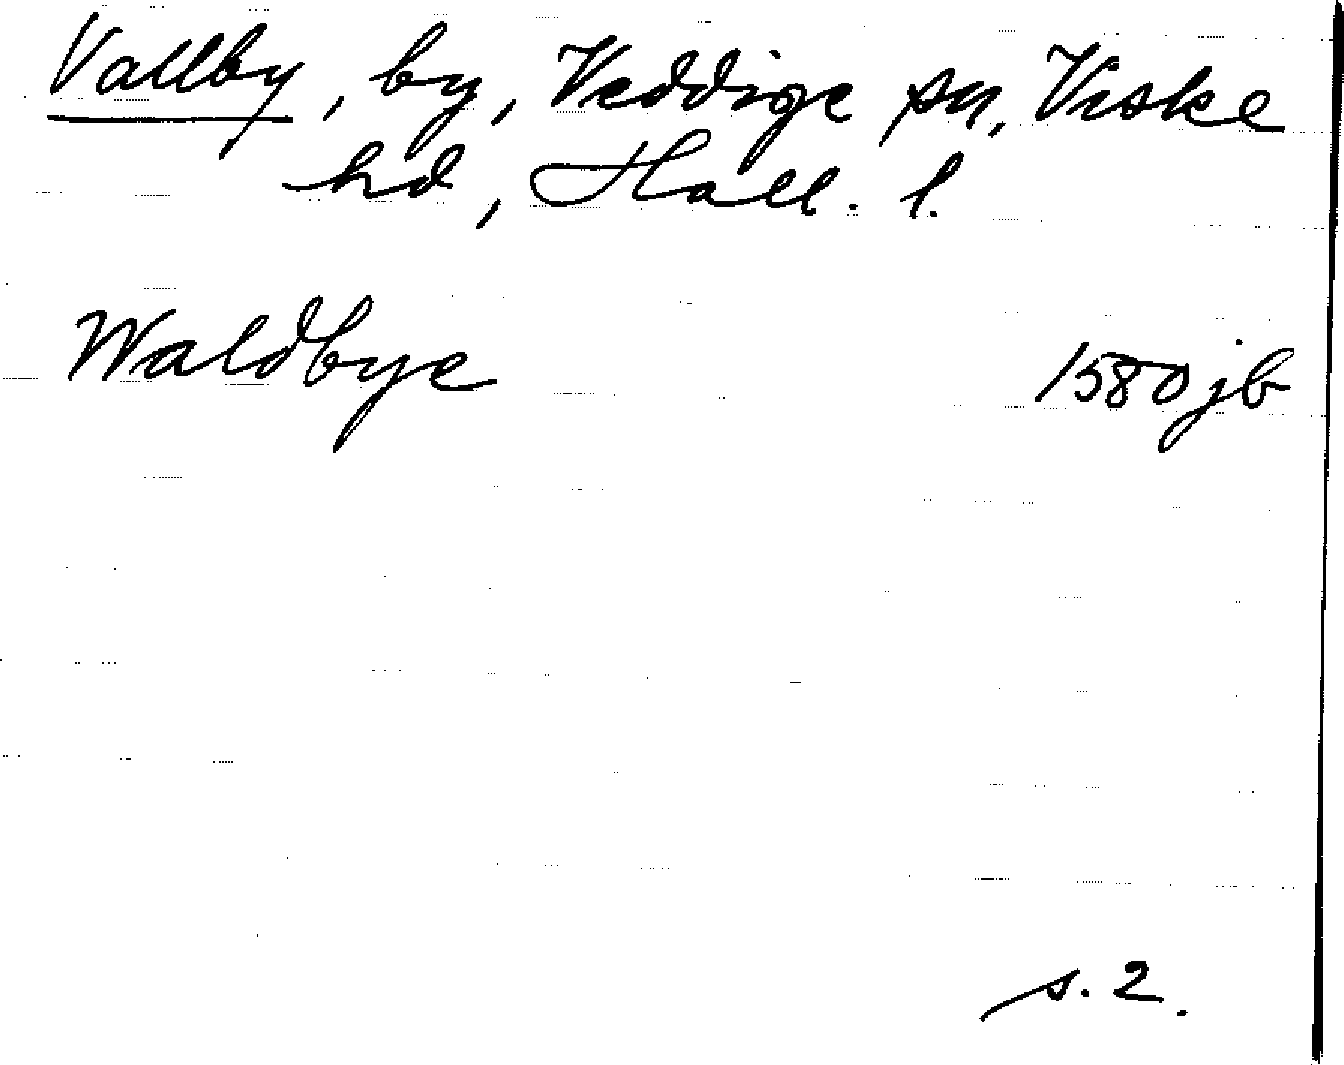 Vallby, by, Veddige sn, Viske
hd, Hall. l.
Waldbye 1580 jb
s. 2.